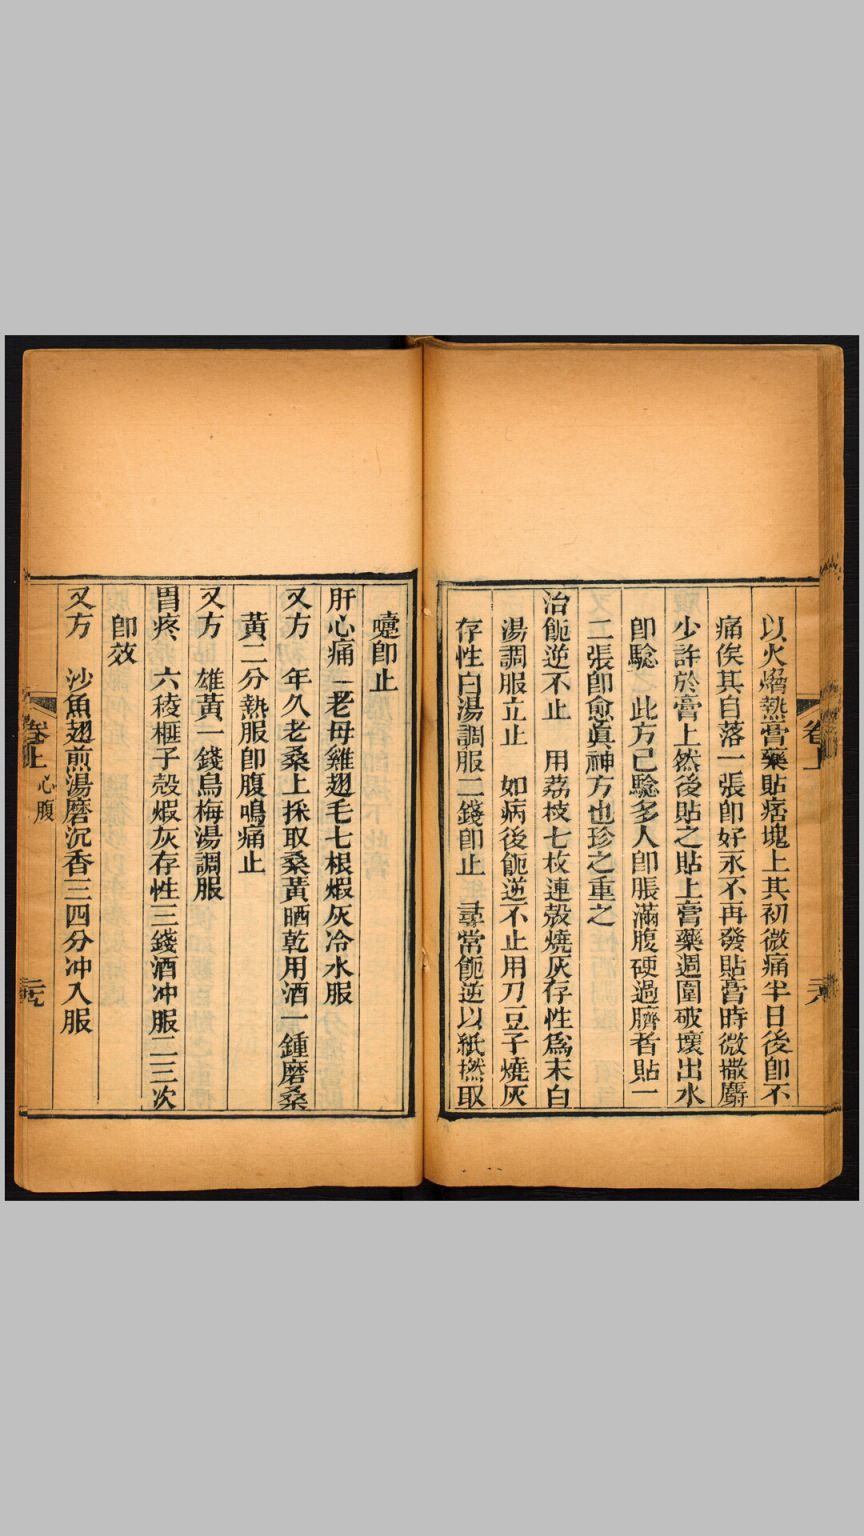 以火熖熱膏藥貼痞塊上其初微痛半日後卽不
痛俟其自落一張卽好永不再發貼膏時微撒麝
少許於膏上然後貼之貼上膏藥週圍破壞出水
卽騐 此方已騐多人卽脹滿腹硬過臍者貼一
二張卽愈眞神方也珍之重之
治呃逆不止 用荔枝七枚連殼燒灰存性爲末白
湯調服立止 如病後呃逆不止用刀豆子燒灰
存性白湯調服二錢卽止 尋常呃逆以紙撚取
嚏卽止
肝心痛 一老母雞翅毛七根煆灰冷水服
又方 年久老桑上採取桑黃晒乾用酒一鍾磨桑
黃二分熱服卽腹鳴痛止
又方 雄黃一錢烏梅湯調服
胃疼 六稜榧子殼煆灰存性三錢酒冲服二三次
卽效
又方 沙魚翅煎湯磨沉香三四分冲入服
卷上 心腹